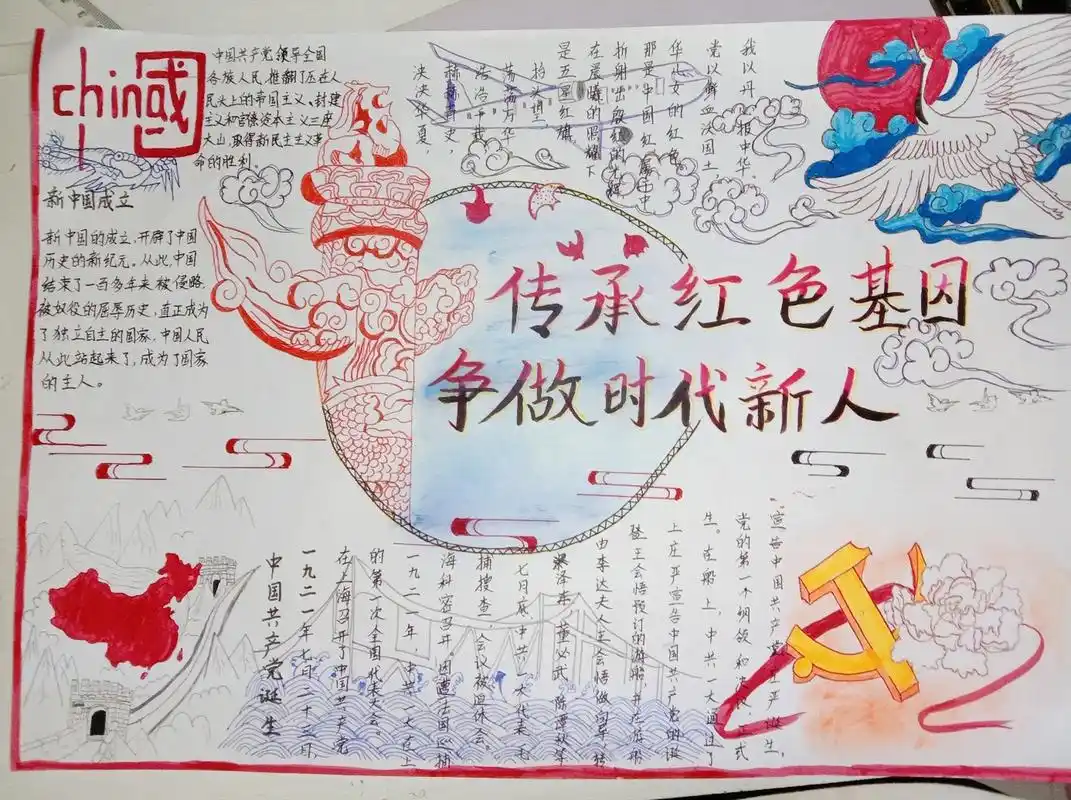 chin國
中国共产党领导全国
各族人民,推翻了压在人
民头上的帝国主义、封建
主义和官僚资本主义三座
大山,取得新民主主义革
命的胜利。
新中国成立
新中国的成立,开辟了中国
历史的新纪元。从此,中国
结束了一百多年来被侵略、
被奴役的屈辱历史,真正成为
了独立自主的国家,中国人民
从此站起来了,成为了国家
的主人。
泱泱华夏,
赫赫青史,
浩浩千载
荡荡万华
抬头望
是五星红旗
在晨曦的照耀下
折射出殷红的
那是中国红
华儿女的红色
党以鲜血决国土,
我以丹心报中华
传承红色基因
争做时代新人
中国共产党诞生
一九二一年七月二十三日,
在上海召开了中国共产党
的第一次全国代表大会。
一九二一年,中共一大在上
海秘密召开。因遭法国巡捕
捕搜查,会议被迫休会。
七月底,中共一大代表毛
泽东、董必武、陈潭秋等
由李达夫人王会悟做向导,转
登王会悟预订的游船,并在游船
上庄严宣告中国共产党的诞
生。在船上,中共一大通过了
党的第一个纲领和决议,正式
宣告中国共产党庄严诞生。